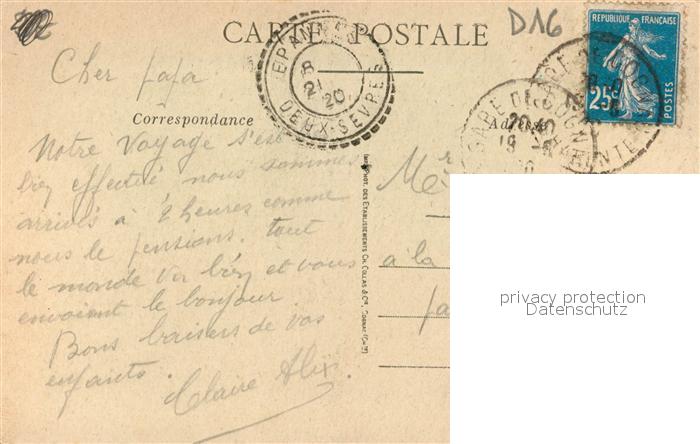 CARTE POSTALE
D16
RÉPUBLIQUE FRANÇAISE
25c
POSTES
EPANNES
8
2
20
DEUX-SEVRES
GARE DE COGNAC
CHARENTE
Correspondance
Adresse
Cher papa
Notre voyage s'est
bien effectué nous sommes
arrivés à 2 heures comme
nous le pensions. tout
le monde va bien et vous
envoient le bonjour
Bons baisers de vos
enfants.
Claire Alix.
Mr
à la
Imp. Phot. des Etablissements Ch. Collas & Cie, Cognac
privacy protection
Datenschutz